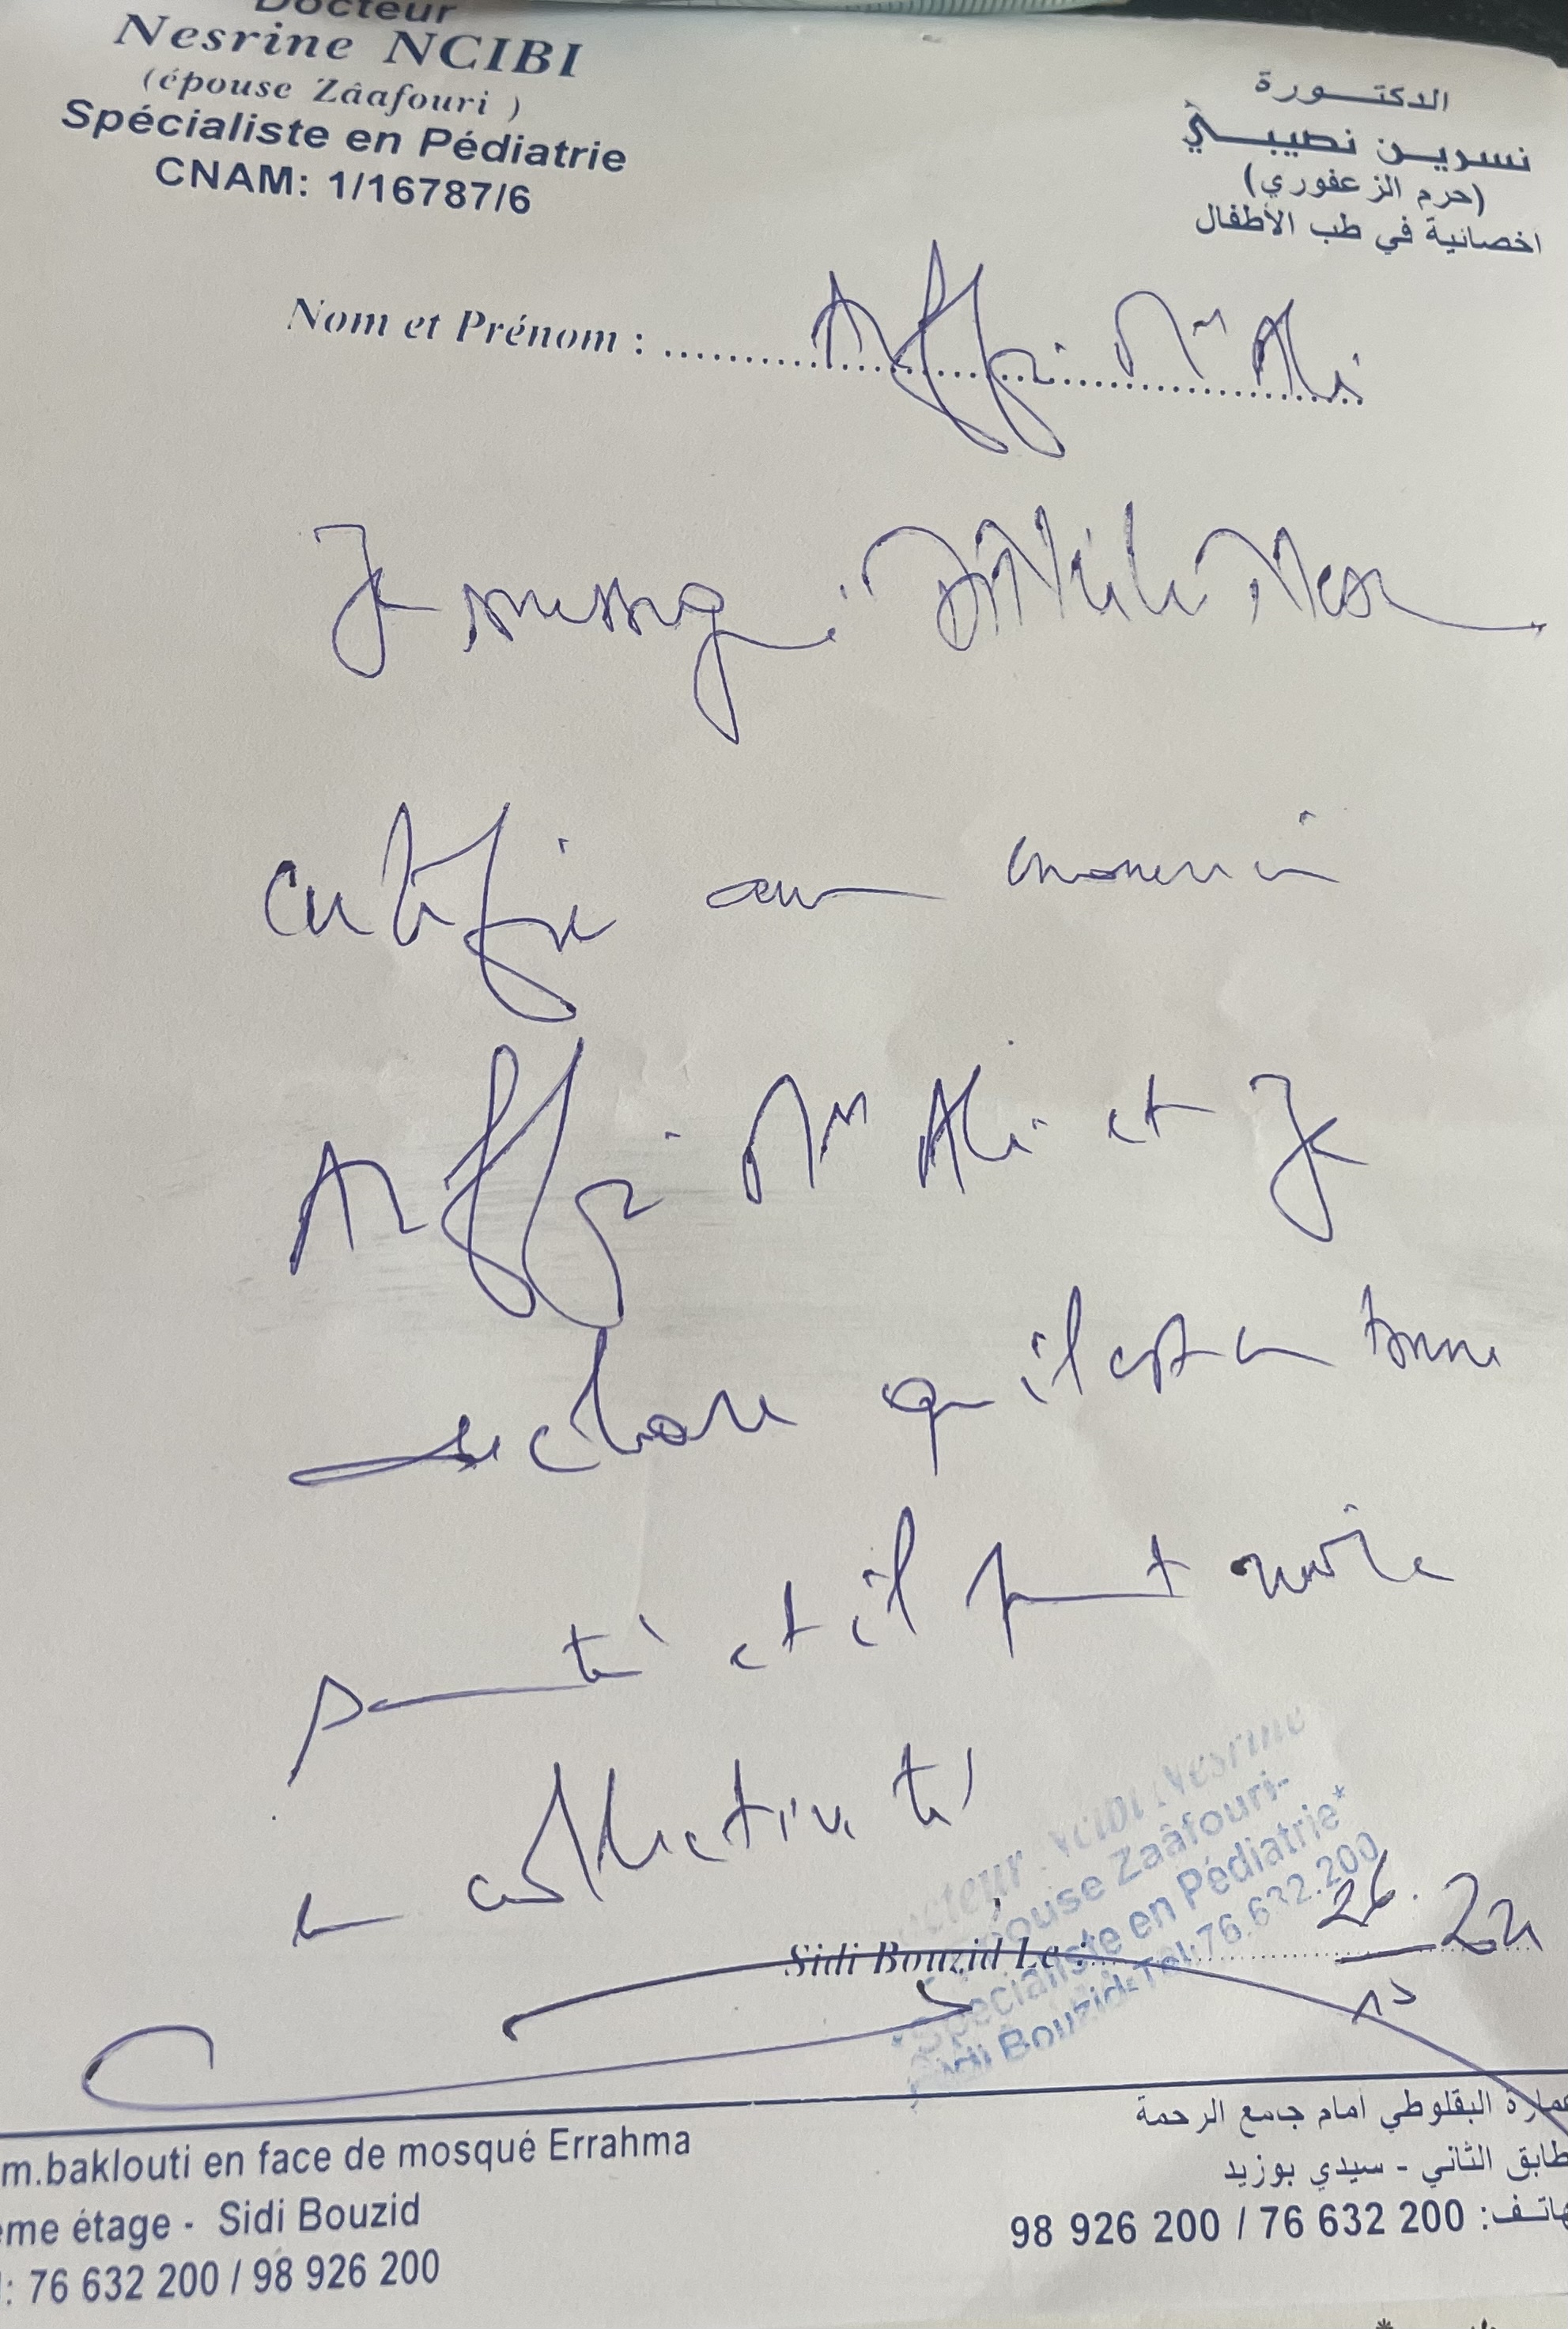 Docteur
Nesrine NCIBI
(épouse Zâafouri )
Spécialiste en Pédiatrie
CNAM: 1/16787/6
الدكتـــورة
نسريـن نصيبـــي
(حرم الزعفوري)
اخصائية في طب الأطفال
Nom et Prénom : Affi Md Ali
Je
certifie
Affi Md Ali et Je
declare qu'il est en bonne
santé et il peut vivre
en collectivité
Docteur Ncibi Nesrine
Epouse Zaâfouri-
*Spécialiste en Pédiatrie*
Sidi Bouzid-Tel:76.632.200
Sidi Bouzid Le : 26
m.baklouti en face de mosqué Errahma
ème étage - Sidi Bouzid
: 76 632 200 / 98 926 200
عمارة البقلوطي امام جامع الرحمة
طابق الثاني - سيدي بوزيد
هاتـف: 200 632 76 / 200 926 98